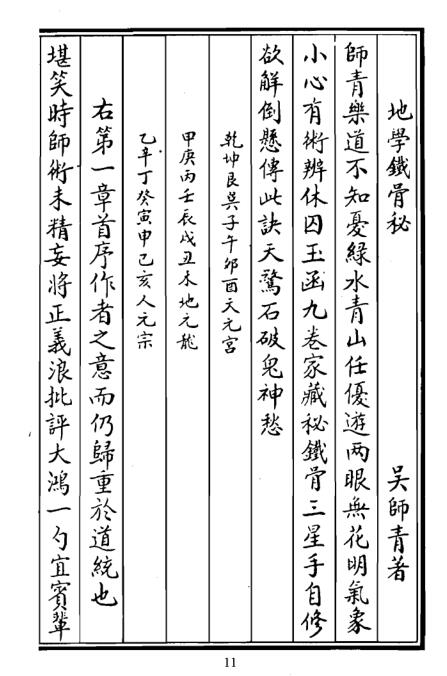 地學鐵骨秘 吴師青著
師青樂道不知憂綠水青山任優遊两眼無花明氣象
小心有術辨休囚玉函九卷家藏秘鐵骨三星手自修
欲解倒懸傳此訣天驚石破鬼神愁
乾坤艮巽子午卯酉天元宮
甲庚丙壬辰戌丑未地元龍
乙辛丁癸寅申己亥人元宗
右第一章首序作者之意而仍歸重於道統也
堪笑時師術未精妄將正義浪批評大鴻一勺宜賓輩
11